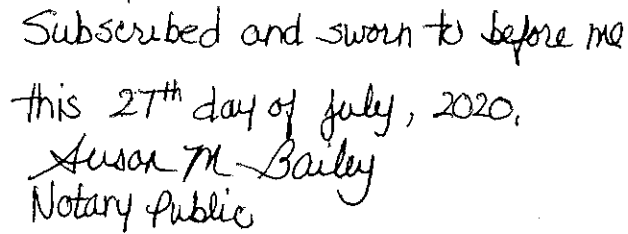 Subscribed and sworn to before me
this 27th day of July, 2020.
Susan M Bailey
Notary Public